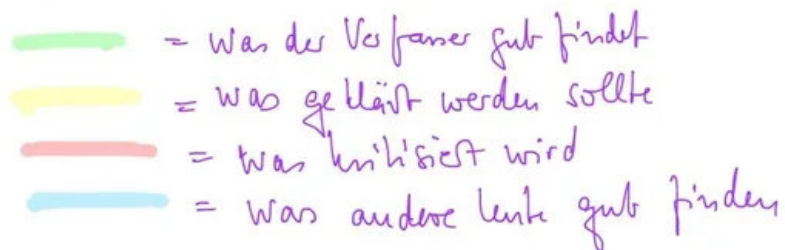 = was der Verfasser gut findet
= was geklärt werden sollte
= was kritisiert wird
= was andere leute gut finden